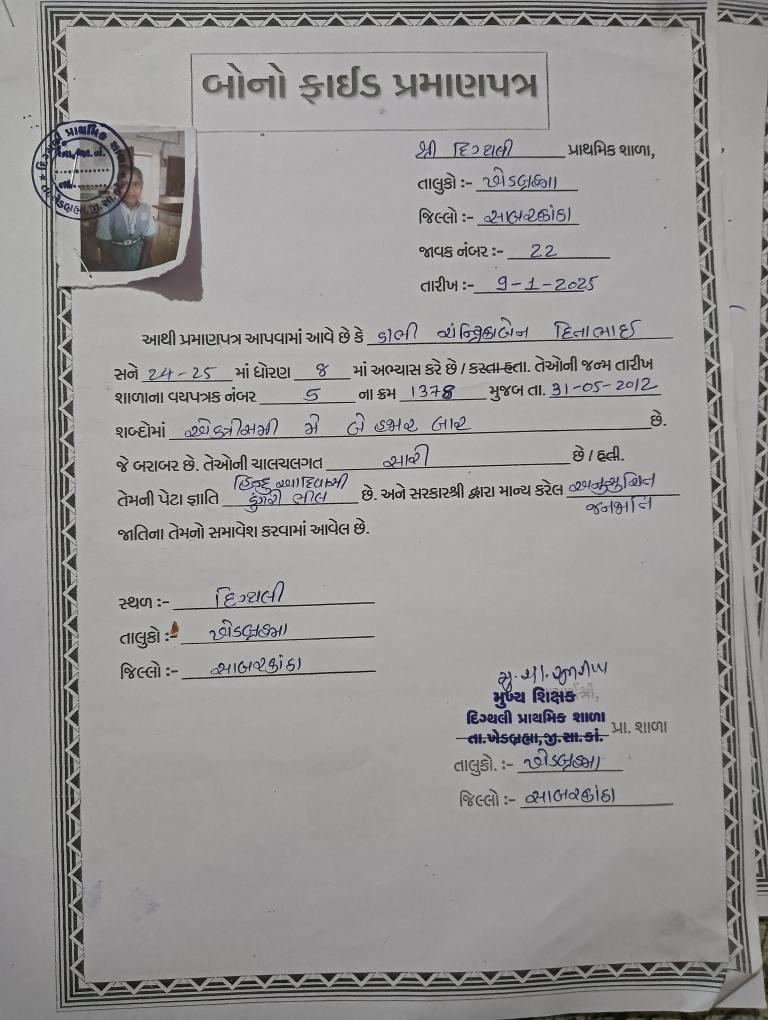 બોનો ફાઈડ પ્રમાણપત્ર
દિગ્થલી પ્રાથમિક શાળા
તા.ખેડબ્રહ્મા,જી.સા.કાં.
શ્રી દિગ્થલી પ્રાથમિક શાળા,
તાલુકો :- ખેડબ્રહ્મા
જિલ્લો :- સાબરકાંઠા
જાવક નંબર :- 22
તારીખ :- 9-1-2025
આથી પ્રમાણપત્ર આપવામાં આવે છે કે ડાભી ચંન્દ્રિકાબેન દિતાભાઈ
સને 24-25 માં ધોરણ 8 માં અભ્યાસ કરે છે / કરતા હતા. તેઓની જન્મ તારીખ
શાળાના વયપત્રક નંબર 5 ના ક્રમ 1378 મુજબ તા. 31-05-2012
શબ્દોમાં એકત્રીસમી મે બે હજાર બાર છે.
જે બરાબર છે. તેઓની ચાલચલગત સારી છે / હતી.
તેમની પેટા જ્ઞાતિ હિન્દુ આદિવાસી ડુંગરી ભીલ છે. અને સરકારશ્રી દ્વારા માન્ય કરેલ અનુસુચિત જનજાતિ
જાતિના તેમનો સમાવેશ કરવામાં આવેલ છે.
સ્થળ :- દિગ્થલી
તાલુકો :- ખેડબ્રહ્મા
જિલ્લો :- સાબરકાંઠા
મુખ્ય શિક્ષક
દિગ્થલી પ્રાથમિક શાળા
તા.ખેડબ્રહ્મા,જી.સા.કાં. પ્રા. શાળા
તાલુકો. :- ખેડબ્રહ્મા
જિલ્લો :- સાબરકાંઠા